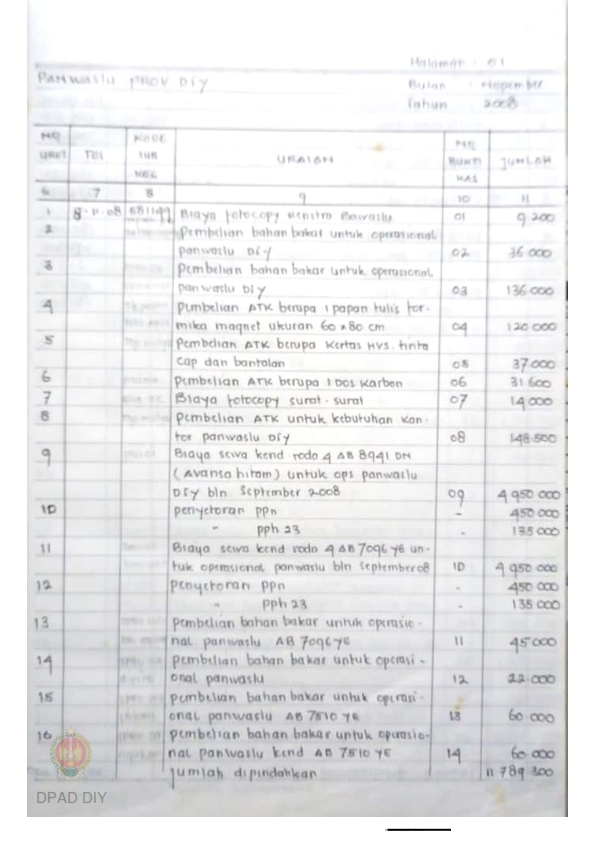 Halaman : 01
PANWASLU PROV DIY
Bulan : Nopember
Tahun 2008
NO URUT TGL KODE SUB KEG URAIAN NO BUKTI KAS JUMLAH
6 7 8 9 10 11
1 8-11-08 581149 Biaya fotocopy Renstra Bawaslu 01 9 200
2 Pembelian bahan bakar untuk operasional
panwaslu DIY 02 36 000
3 Pembelian bahan bakar untuk operasional
panwaslu DIY 03 136 000
4 Pembelian ATK berupa 1 papan tulis for-
mika magnet ukuran 60 x 80 cm 04 120 000
5 Pembelian ATK berupa Kertas HVS. tinta
cap dan bantalan 05 37 000
6 pembelian ATK berupa 1 DOS Karbon 06 31 600
7 Biaya fotocopy surat-surat 07 14 000
8 Pembelian ATK untuk kebutuhan kan-
tor panwaslu DIY 08 148.500
9 Biaya sewa kend roda 4 AB 8941 DN
( Avansa hitam ) untuk ops panwaslu
DIY bln September 2008 09 4 950 000
10 penyetoran ppn - 450 000
" pph 23 - 135 000
11 Biaya sewa kend roda 4 AB 7096 YE un-
tuk operasional panwaslu bln September 08 10 4 950 000
12 penyetoran ppn - 450 000
" pph 23 - 135 000
13 pembelian bahan bakar untuk operasio-
nal panwaslu AB 7096 YE 11 45 000
14 pembelian bahan bakar untuk operasi-
onal panwaslu 12 22.000
15 pembelian bahan bakar untuk operasi-
onal panwaslu AB 7510 YE 13 60 000
16 pembelian bahan bakar untuk operasio-
nal panwaslu kend AB 7510 YE 14 60.000
Jumlah dipindahkan 11 789 300
DPAD DIY